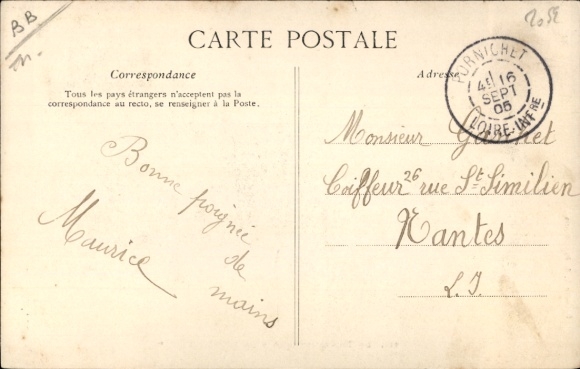 BB
CARTE POSTALE
Correspondance
Tous les pays étrangers n'acceptent pas la
correspondance au recto, se renseigner à la Poste.
Bonne poignée
de
mains
Maurice
Adresse
PORNICHET
16
SEPT
05
LOIRE-INFRE
Monsieur
Coiffeur 26 rue St Similien
Nantes
L.I.